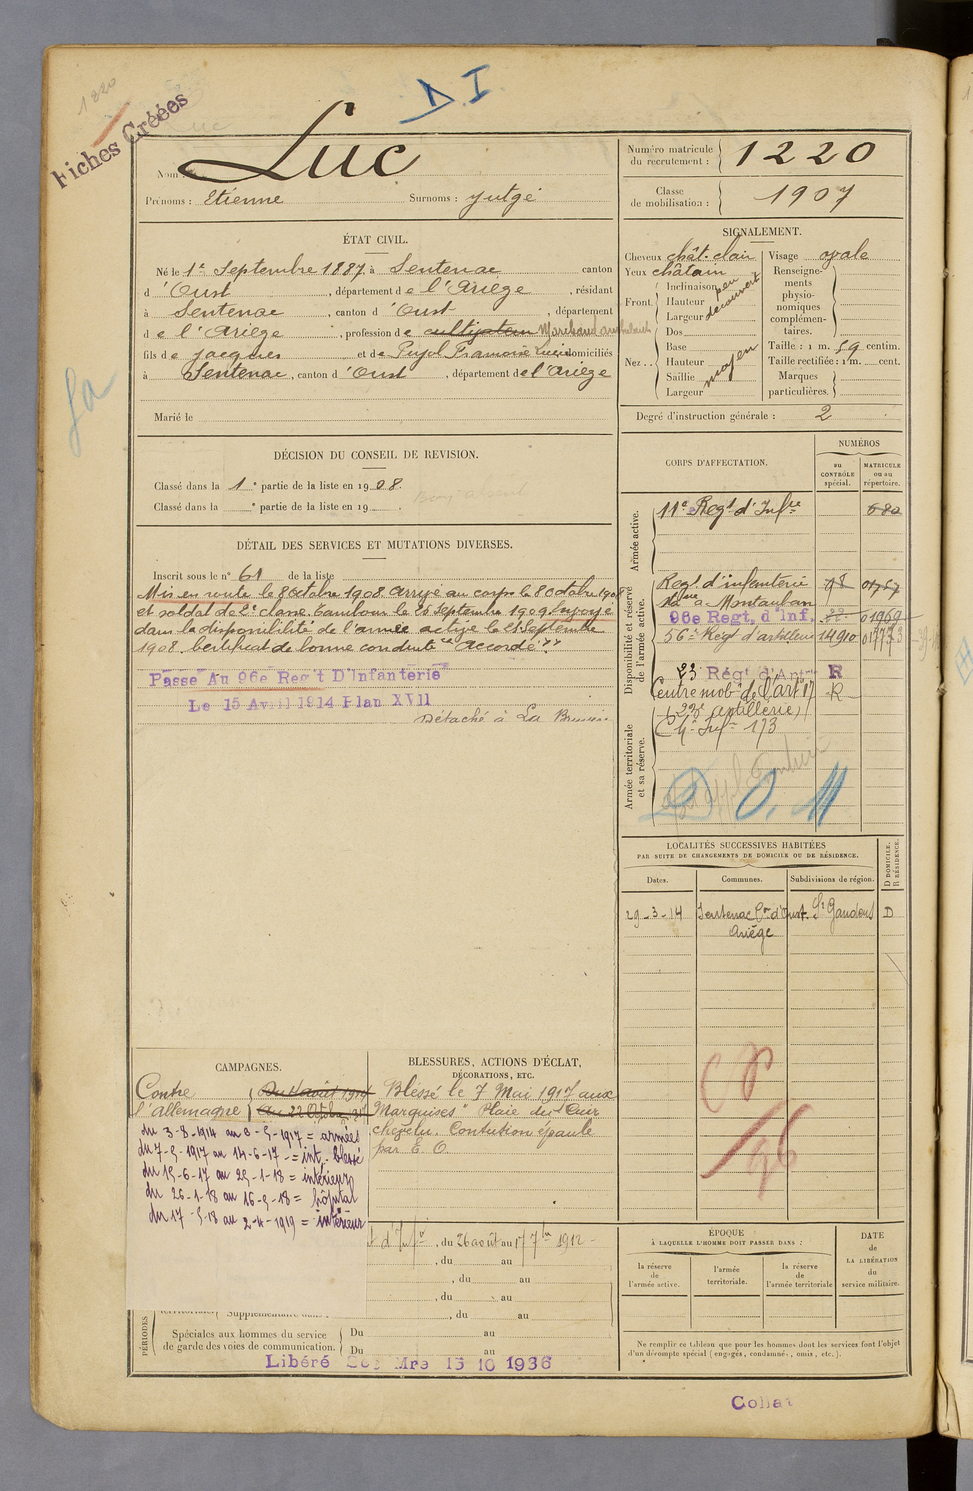 1220
Fiches Créées
D I
Nom : Luc
Prénoms : Etienne Surnoms : Jutgé
Numéro matricule du recrutement : 1220
Classe de mobilisation : 1907
ÉTAT CIVIL.
Né le 1er Septembre 1887, à Sentenac canton
d'Oust, département de l'Ariège, résidant
à Sentenac, canton d'Oust, département
de l'Ariège, profession de cultivateur Marchand ambulant
fils de Jacques et de Pujol Françoise Lucie domiciliés
à Sentenac, canton d'Oust, département de l'Ariège
Marié le
SIGNALEMENT.
Cheveux chât. clair
Yeux châtain
Front. Inclinaison
Hauteur
Largeur
peu découvert
Nez.. Dos
Base
Hauteur
Saillie
Largeur
moyen
Visage ovale
Renseignements physionomiques complémentaires.
Taille : 1 m. 59 centim.
Taille rectifiée : 1 m. cent.
Marques particulières.
Degré d'instruction générale : 2
DÉCISION DU CONSEIL DE REVISION.
Classé dans la 1e partie de la liste en 1908.
Classé dans la e partie de la liste en 19 .
Bon absent
DÉTAIL DES SERVICES ET MUTATIONS DIVERSES.
Inscrit sous le n° 61 de la liste
Mis en route le 8 octobre 1908. Arrivé au corps le 8 octobre 1908
et soldat de 2e classe. Tambour le 25 Septembre 1909. Envoyé
dans la disponibilité de l'armée active le 25 Septembre
1908. Certificat de bonne conduite "Accordé".
Passé Au 96e Reg't D'Infanterie
Le 15 Avril 1914 Plan XVII
Détaché à La
CORPS D'AFFECTATION.
NUMÉROS
au CONTRÔLE spécial.
MATRICULE ou au répertoire.
Armée active.
11e Regt d'Infrie 680
Disponibilité et réserve de l'armée active.
Regt d'infanterie 48 01757
à Montauban
96e Regt. d'Inf. 22 01969
56e Regt d'artillerie 14910 01773
23 Rég. d'Art R
Centre mobe de l'art 17 R
(23e artillerie)
Armée territoriale et sa réserve.
Ch. Inf. 173
D. O. M
LOCALITÉS SUCCESSIVES HABITÉES
PAR SUITE DE CHANGEMENTS DE DOMICILE OU DE RÉSIDENCE.
Dates. Communes. Subdivisions de région. D DOMICILE. R RÉSIDENCE.
29-3-14 Sentenac Con d'Oust St Gaudens D
Ariège
CP
96
CAMPAGNES.
Contre l'allemagne
Du 4 août 1914
au 22 Octobre 1917
du 3-8-1914 au 6-5-1917 = armées
du 7-5-1917 au 14-6-17 = int. blessé
du 15-6-17 au 25-1-18 = intérieur
du 26-1-18 au 16-5-18 = hôpital
du 17-5-18 au 2-4-1919 = intérieur
BLESSURES, ACTIONS D'ÉCLAT,
DÉCORATIONS, ETC.
Blessé le 7 Mai 1917 aux
"Marquises" Plaie du Cuir
chevelu. Contution épaule
par E. O.
, du 26 août au 17 7bre 1912
, du au
, du au
, du au
Supplémentaire dans , du au
PÉRIODES
Spéciales aux hommes du service
de garde des voies de communication.
Du au
Du au
Libéré Mre 15 10 1936
ÉPOQUE
À LAQUELLE L'HOMME DOIT PASSER DANS :
la réserve de l'armée active.
l'armée territoriale.
la réserve de l'armée territoriale
DATE de LA LIBÉRATION du service militaire.
Ne remplir ce tableau que pour les hommes dont les services font l'objet
d'un décompte spécial (engagés, condamnés, omis, etc.).